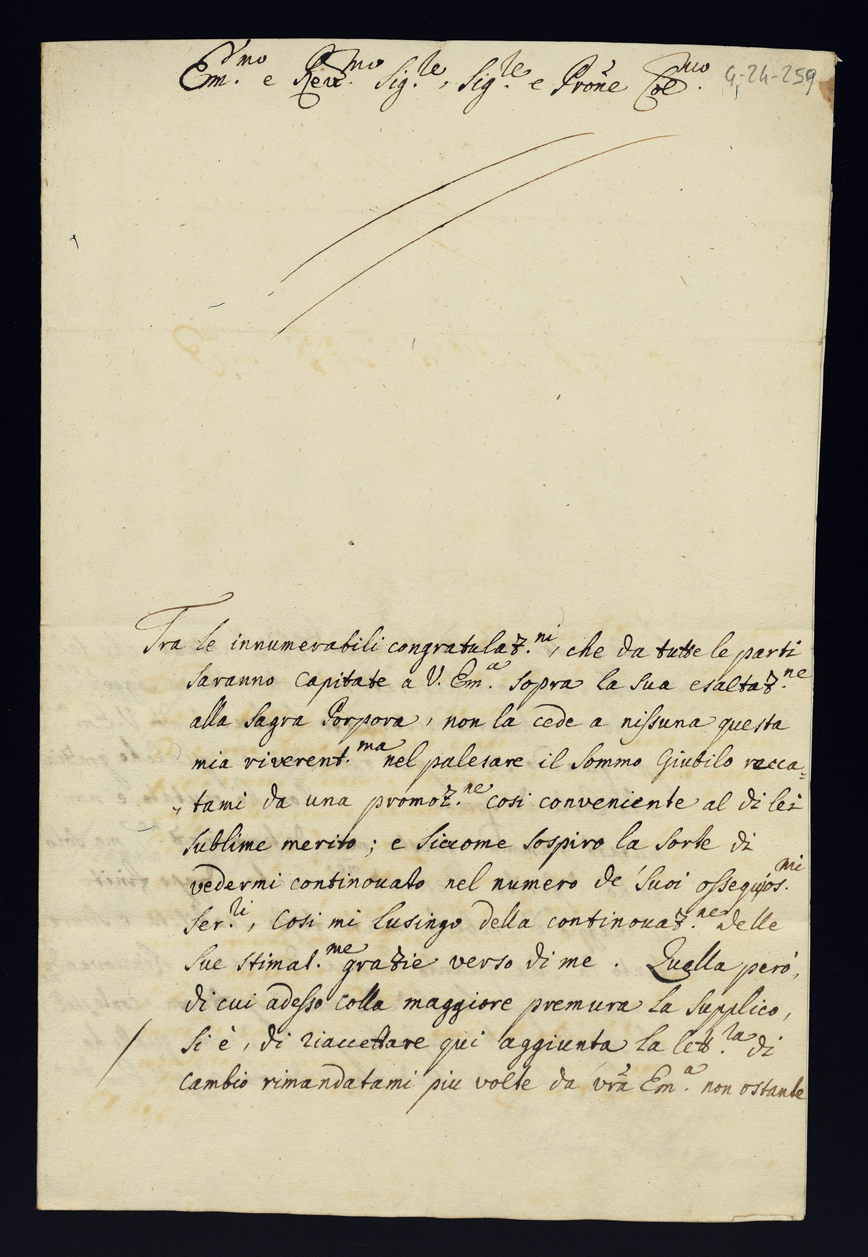 Em.mo e Rev.mo Sig.re, Sig.re e Prone Col.mo 4-24-259
Tra le innumerabili congratulaz.ni, che da tutte le parti
saranno capitate a V. Em.a sopra la sua esaltaz.ne
alla Sagra Porpora, non la cede a nissuna questa
mia riverent.ma nel palesare il Sommo Giubilo recca=
tami da una promoz.ne così conveniente al di lei
sublime merito; e siccome sospiro la sorte di
vedermi continovato nel numero de' suoi ossequios.mi
Ser.ri, così mi lusingo della continovaz.ne delle
sue stimat.me grazie verso di me. Quella però,
di cui adesso colla maggiore premura la supplico,
si è, di riaccettare qui aggiunta la lett.ra di
cambio rimandatami piu volte da vra Em.a non ostante